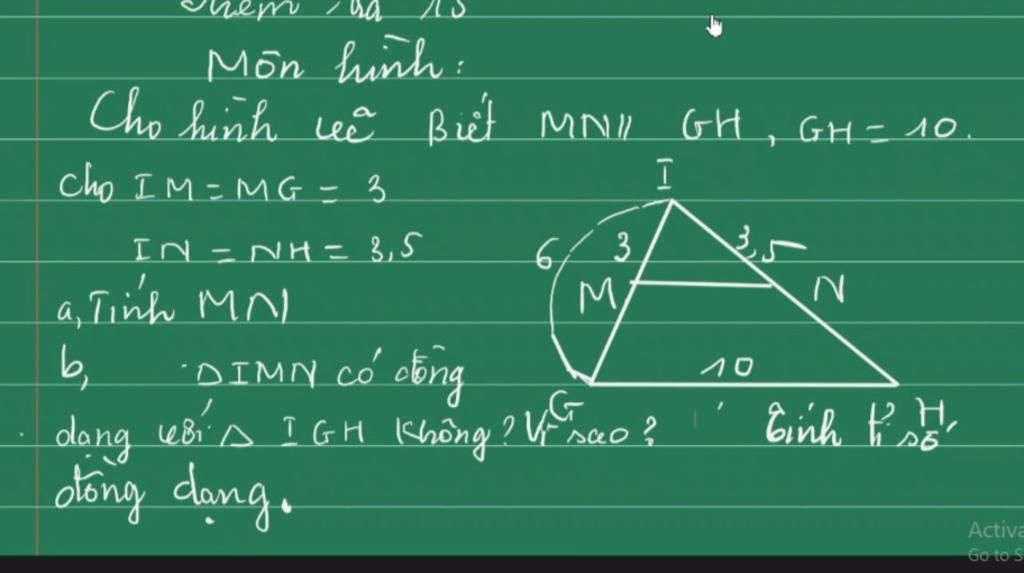 Môn hình:
Cho hình vẽ Biết MN// GH, GH = 10.
Cho IM = MG = 3
IN = NH = 3,5
a, Tính MN
b, ΔIMN có đồng
dạng với Δ IGH không? Vì sao? Tính tỉ số
đồng dạng.
I
6 3 3,5
M N
10
G H
Activa
Go to S